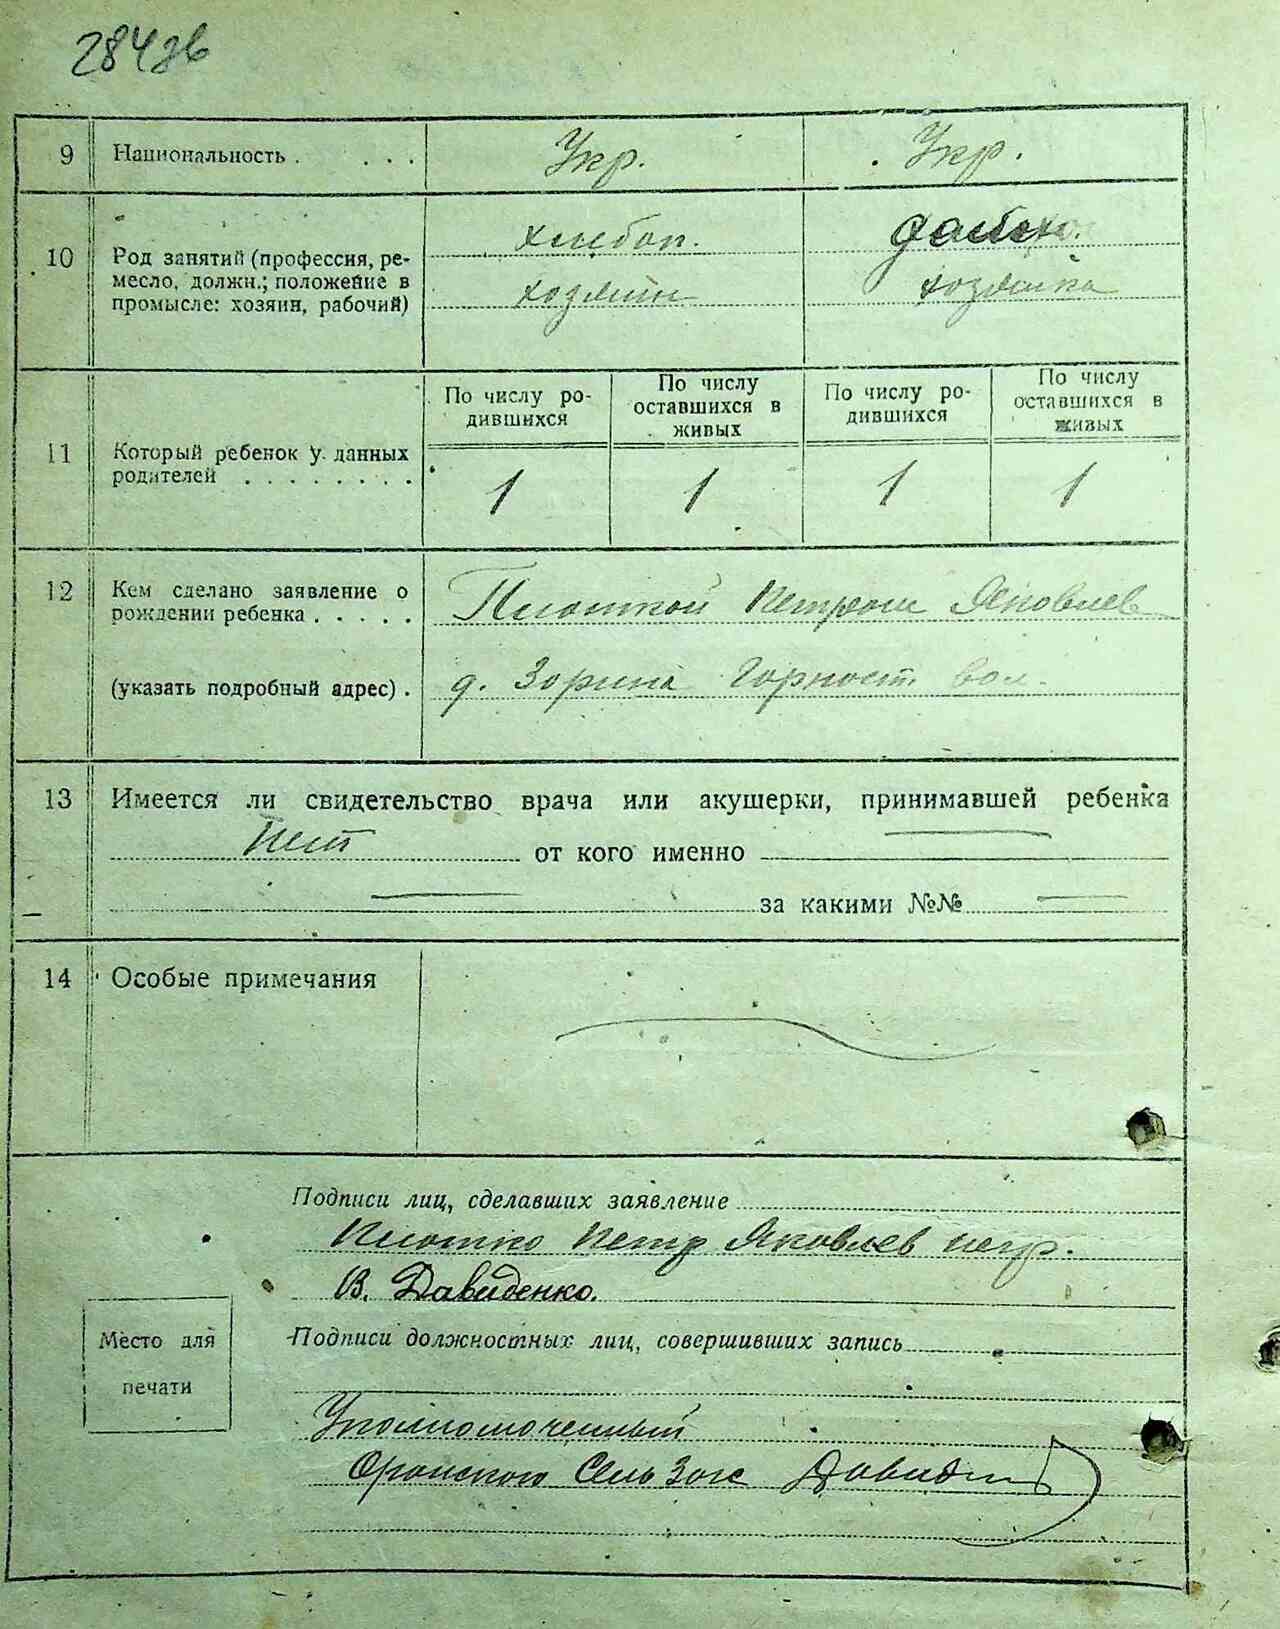 284 зв
9 Национальность . . . . Укр. Укр.
10 Род занятий (профессия, ре-
месло, должн.; положение в
промысле: хозяин, рабочий)
хлебоп.
хозяин
домохо.
хозяйка
По числу ро-
дившихся
По числу
оставшихся в
живых
По числу ро-
дившихся
По числу
оставшихся в
живых
11 Который ребенок у данных
родителей . . . . . . . .
1 1 1 1
12 Кем сделано заявление о
рождении ребенка . . . . .
Петром Яковлев
(указать подробный адрес) .
д. Зорина Горност. вол.
13 Имеется ли свидетельство врача или акушерки, принимавшей ребенка
Нет от кого именно —
— за какими №№ —
14 Особые примечания
Подписи лиц, сделавших заявление
Петр Яковлев негр.
В. Давиденко.
Место для
печати
Подписи должностных лиц, совершивших запись
Уполномоченный
Оранского Сель Загс